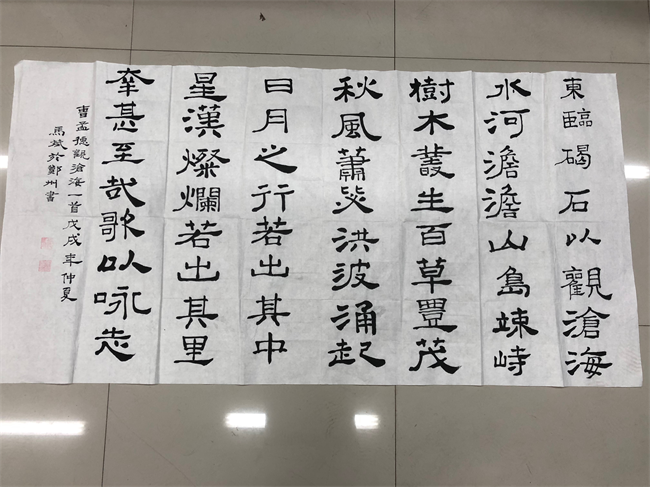 東臨碣石以觀滄海
水河澹澹山島竦峙
樹木叢生百草豐茂
秋風蕭瑟洪波涌起
日月之行若出其中
星漢燦爛若出其里
幸甚至哉歌以咏志
曹孟德觀滄海一首戊戌年仲夏
馬斌於鄭州書